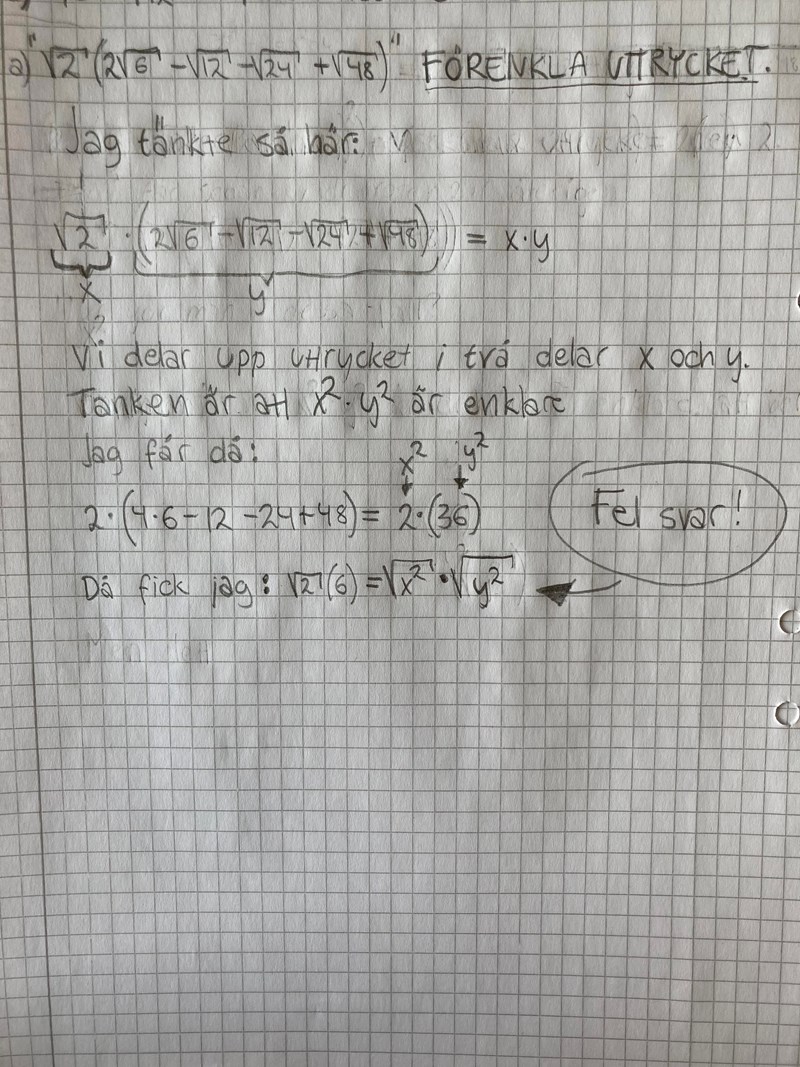 a) "√2 (2√6 - √12 - √24 + √48)" FÖRENKLA UTTRYCKET.
Jag tänkte så här:
√2 · (2√6 - √12 - √24 + √48) = x·y
x y
Vi delar upp uttrycket i två delar x och y.
Tanken är att x² · y² är enklare
Jag får då: x² y²
2·(4·6 - 12 - 24 + 48) = 2·(36)
Fel svar!
Då fick jag: √2 (6) = √x² · √y²